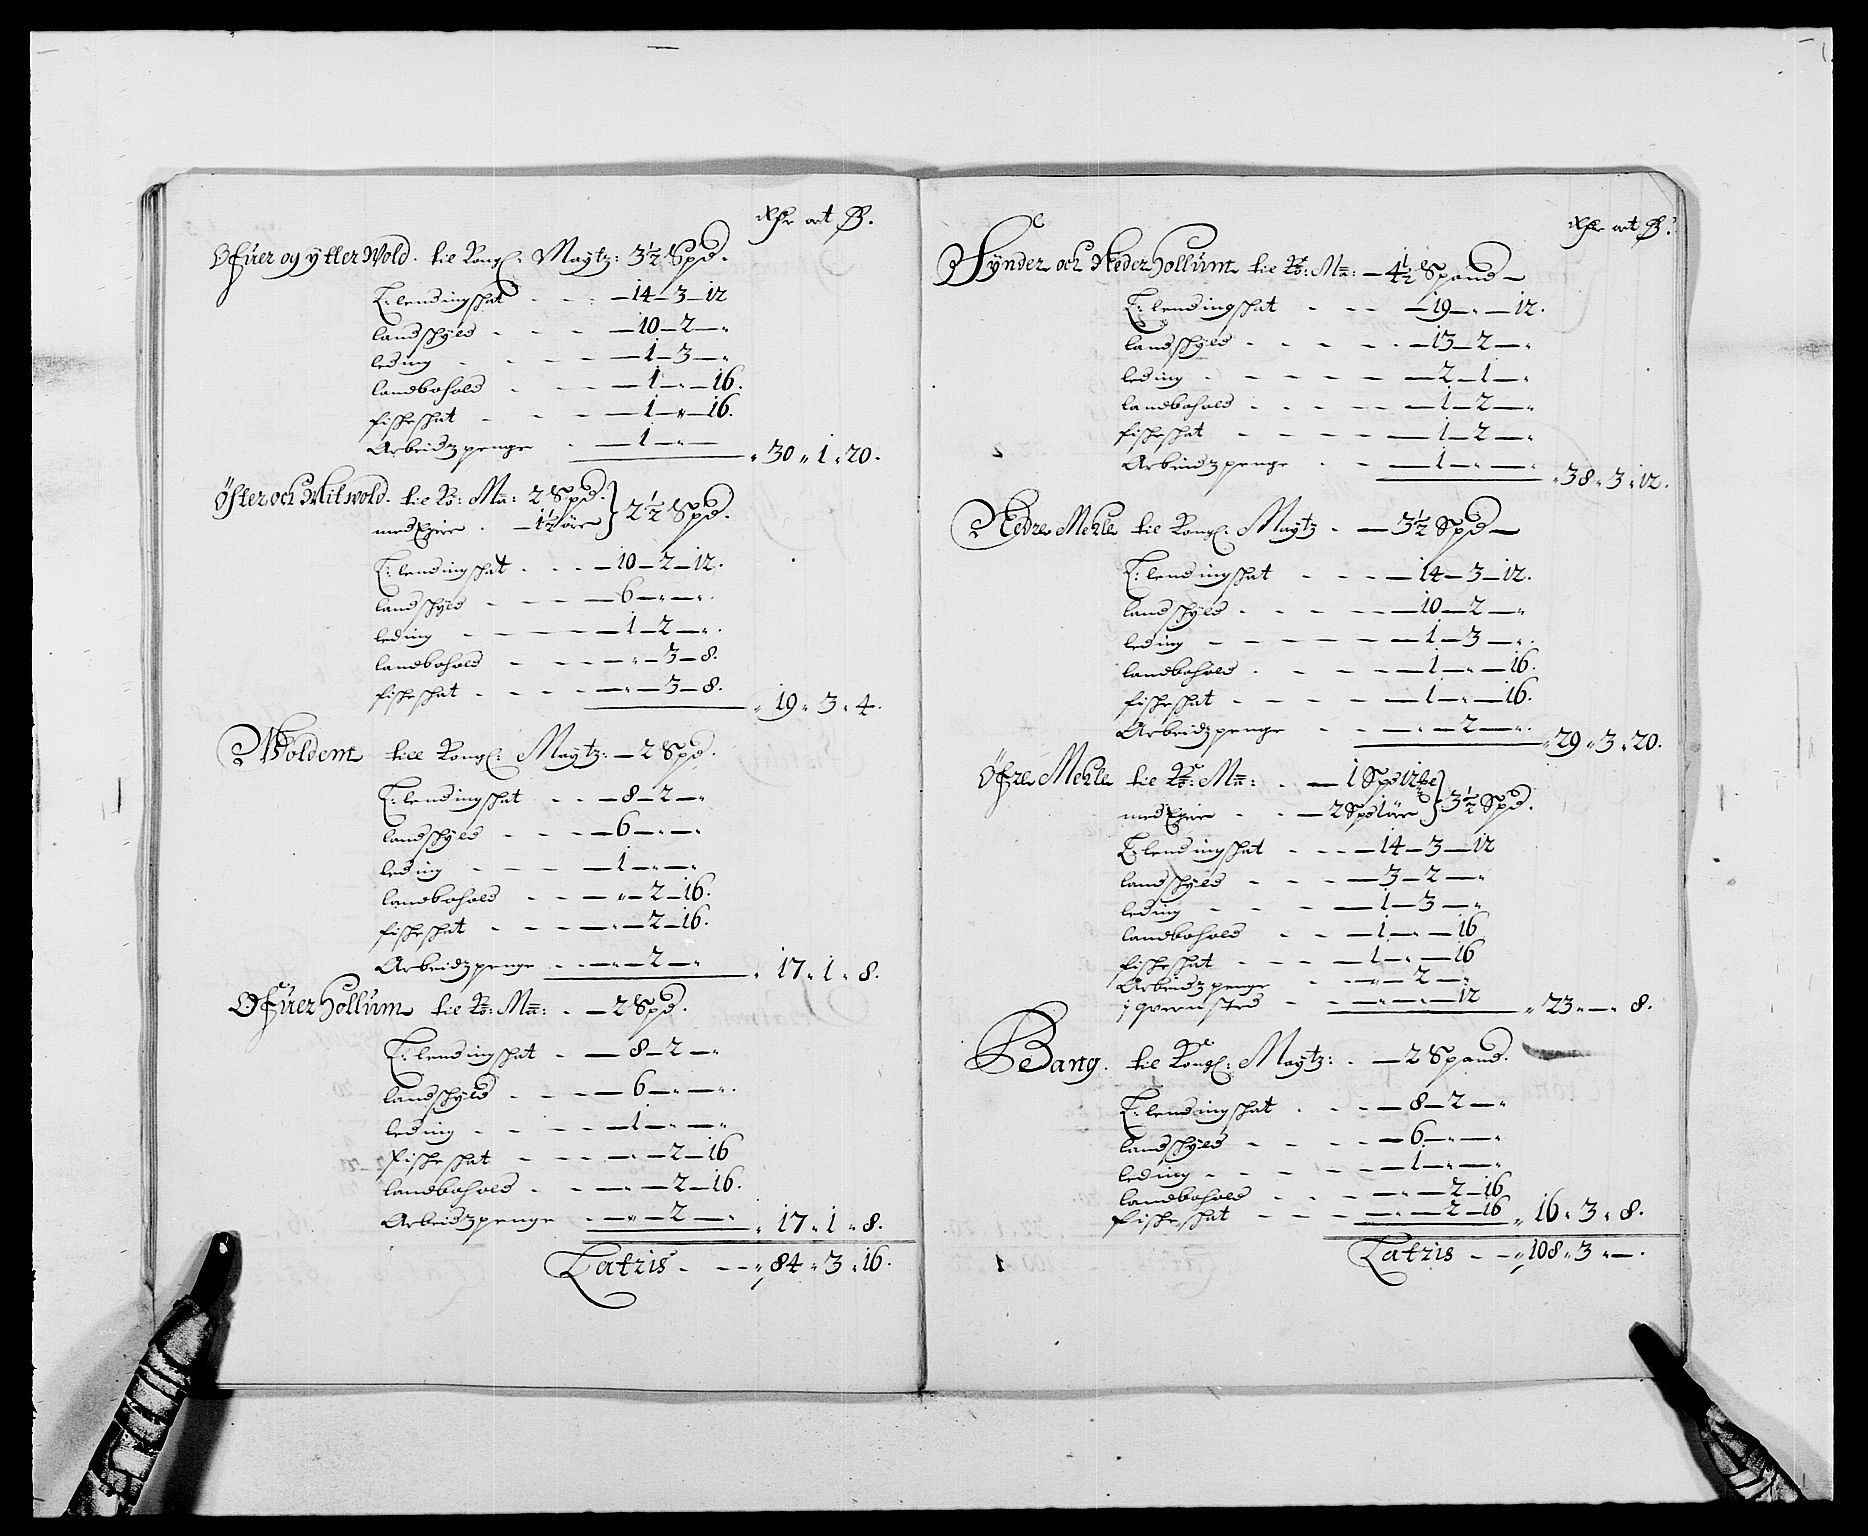 Rdr ort ß.
Øfuer og ytter Wold. til Kongl: Maytz: 3½ Spd.
T: lendingschat - - - 14 - 3 - 12
landschyld - - - - 10 - 2 - „
leding - - - - 1 - 3 - „
landbohold - - - 1 - „ - 16.
fischeschat - - - 1 - „ - 16.
Arbeidzpenge - 1 - „ - „ 30 „ 1 „ 20.
Öster och Mitwold. til Ko: Ma: 2 Spd. } 2½ Spd.
med Egier - 1½ öre
T: lendingschat - - - 10 - 2 - 12.
landschyld - - - - 6 - „ - „.
leding - - - - 1 - 2 - „.
landbohold - - - - „ - 3 - 8.
fischeschat - - - - „ - 3 - 8. „ 19 „ 3 „ 4.
Woldem till Kongl: Maytz: - 2 Spd.
T: lendingschat - - - 8 - 2 - „
landschyld - - - - 6 - „ - „
leding - - - - 1 - „ - „
landbohold - - - „ - 2 - 16.
fischeschat - - - - „ - 2 - 16.
Arbeidzpenge - - „ - 2 - „ „ 17 „ 1 „ 8.
Øfuer Hollum til Ko: Ma: - 2 Spd.
T: lendingschat - - 8 - 2 - „
landschyld - - - 6 - „ - „.
leding - - - - 1 - „ - „
fischeschat - - - - „ - 2 - 16
landbohold - - - „ - 2 - 16.
Arbeidzpenge - „ - 2 - „ „ 17 „ 1 „ 8.
Latris - - - „ 84 „ 3 „ 16.
Rdr ort ß.
Synder och Neder Hollum til Ko: Ma: - 4½ Spand -
T: lendingschat - - - 19 - „ - 12.
landschyld - - - - - 13 - 2 - „
leding - - - - - 2 - 1 - „
landbohold - - - - - 1 - 2 - „
fischeschat - - - - - 1 - 2 - „
Arbeidzpenge - - - 1 - „ - „ „ 38 „ 3 „ 12.
Nedre Mehle til Kongl: Maytz - - 3½ Spd -
T: lendingschat - - - 14 - 3 - 12.
landschyld - - - - 10 - 2 - „
leding - - - - - 1 - 3 - „.
landbohold - - - - 1 - „ - 16.
fischeschat - - - - - 1 - „ - 16.
Arbeidzpenge - - - „ - 2 - „. „ 29 „ 3 „ 20.
Öfre Mehle til Ko: Ma: - - 1 Spd 12 } 3½ Spd.
med Egier - - 2 Spd 1 öre
T: lendingschat - - - 14 - 3 - 12
landschyld - - - - 3 - 2 - „
leding - - - - 1 - 3 - „
landbohold - - - 1 - „ - 16
fischeschat - - - 1 - „ - 16
Arbeidzpenge - - „ - 2 - „
1 qvernsted - - - „ - „ - 12 „ 23 „ - „ 8.
Bang. til Kongl: Maytz: - - 2 Spand.
T: lendingschat - - - 8 - 2 - „
landschyld - - - - 6 - „ - „
leding - - - - - 1 - „ - „
landbohold - - - - „ - 2 - 16
fischeschat - - - - „ - 2 - 16 „ 16 „ 3 „ 8.
Latris - - „ 108 „ 3 „ - .